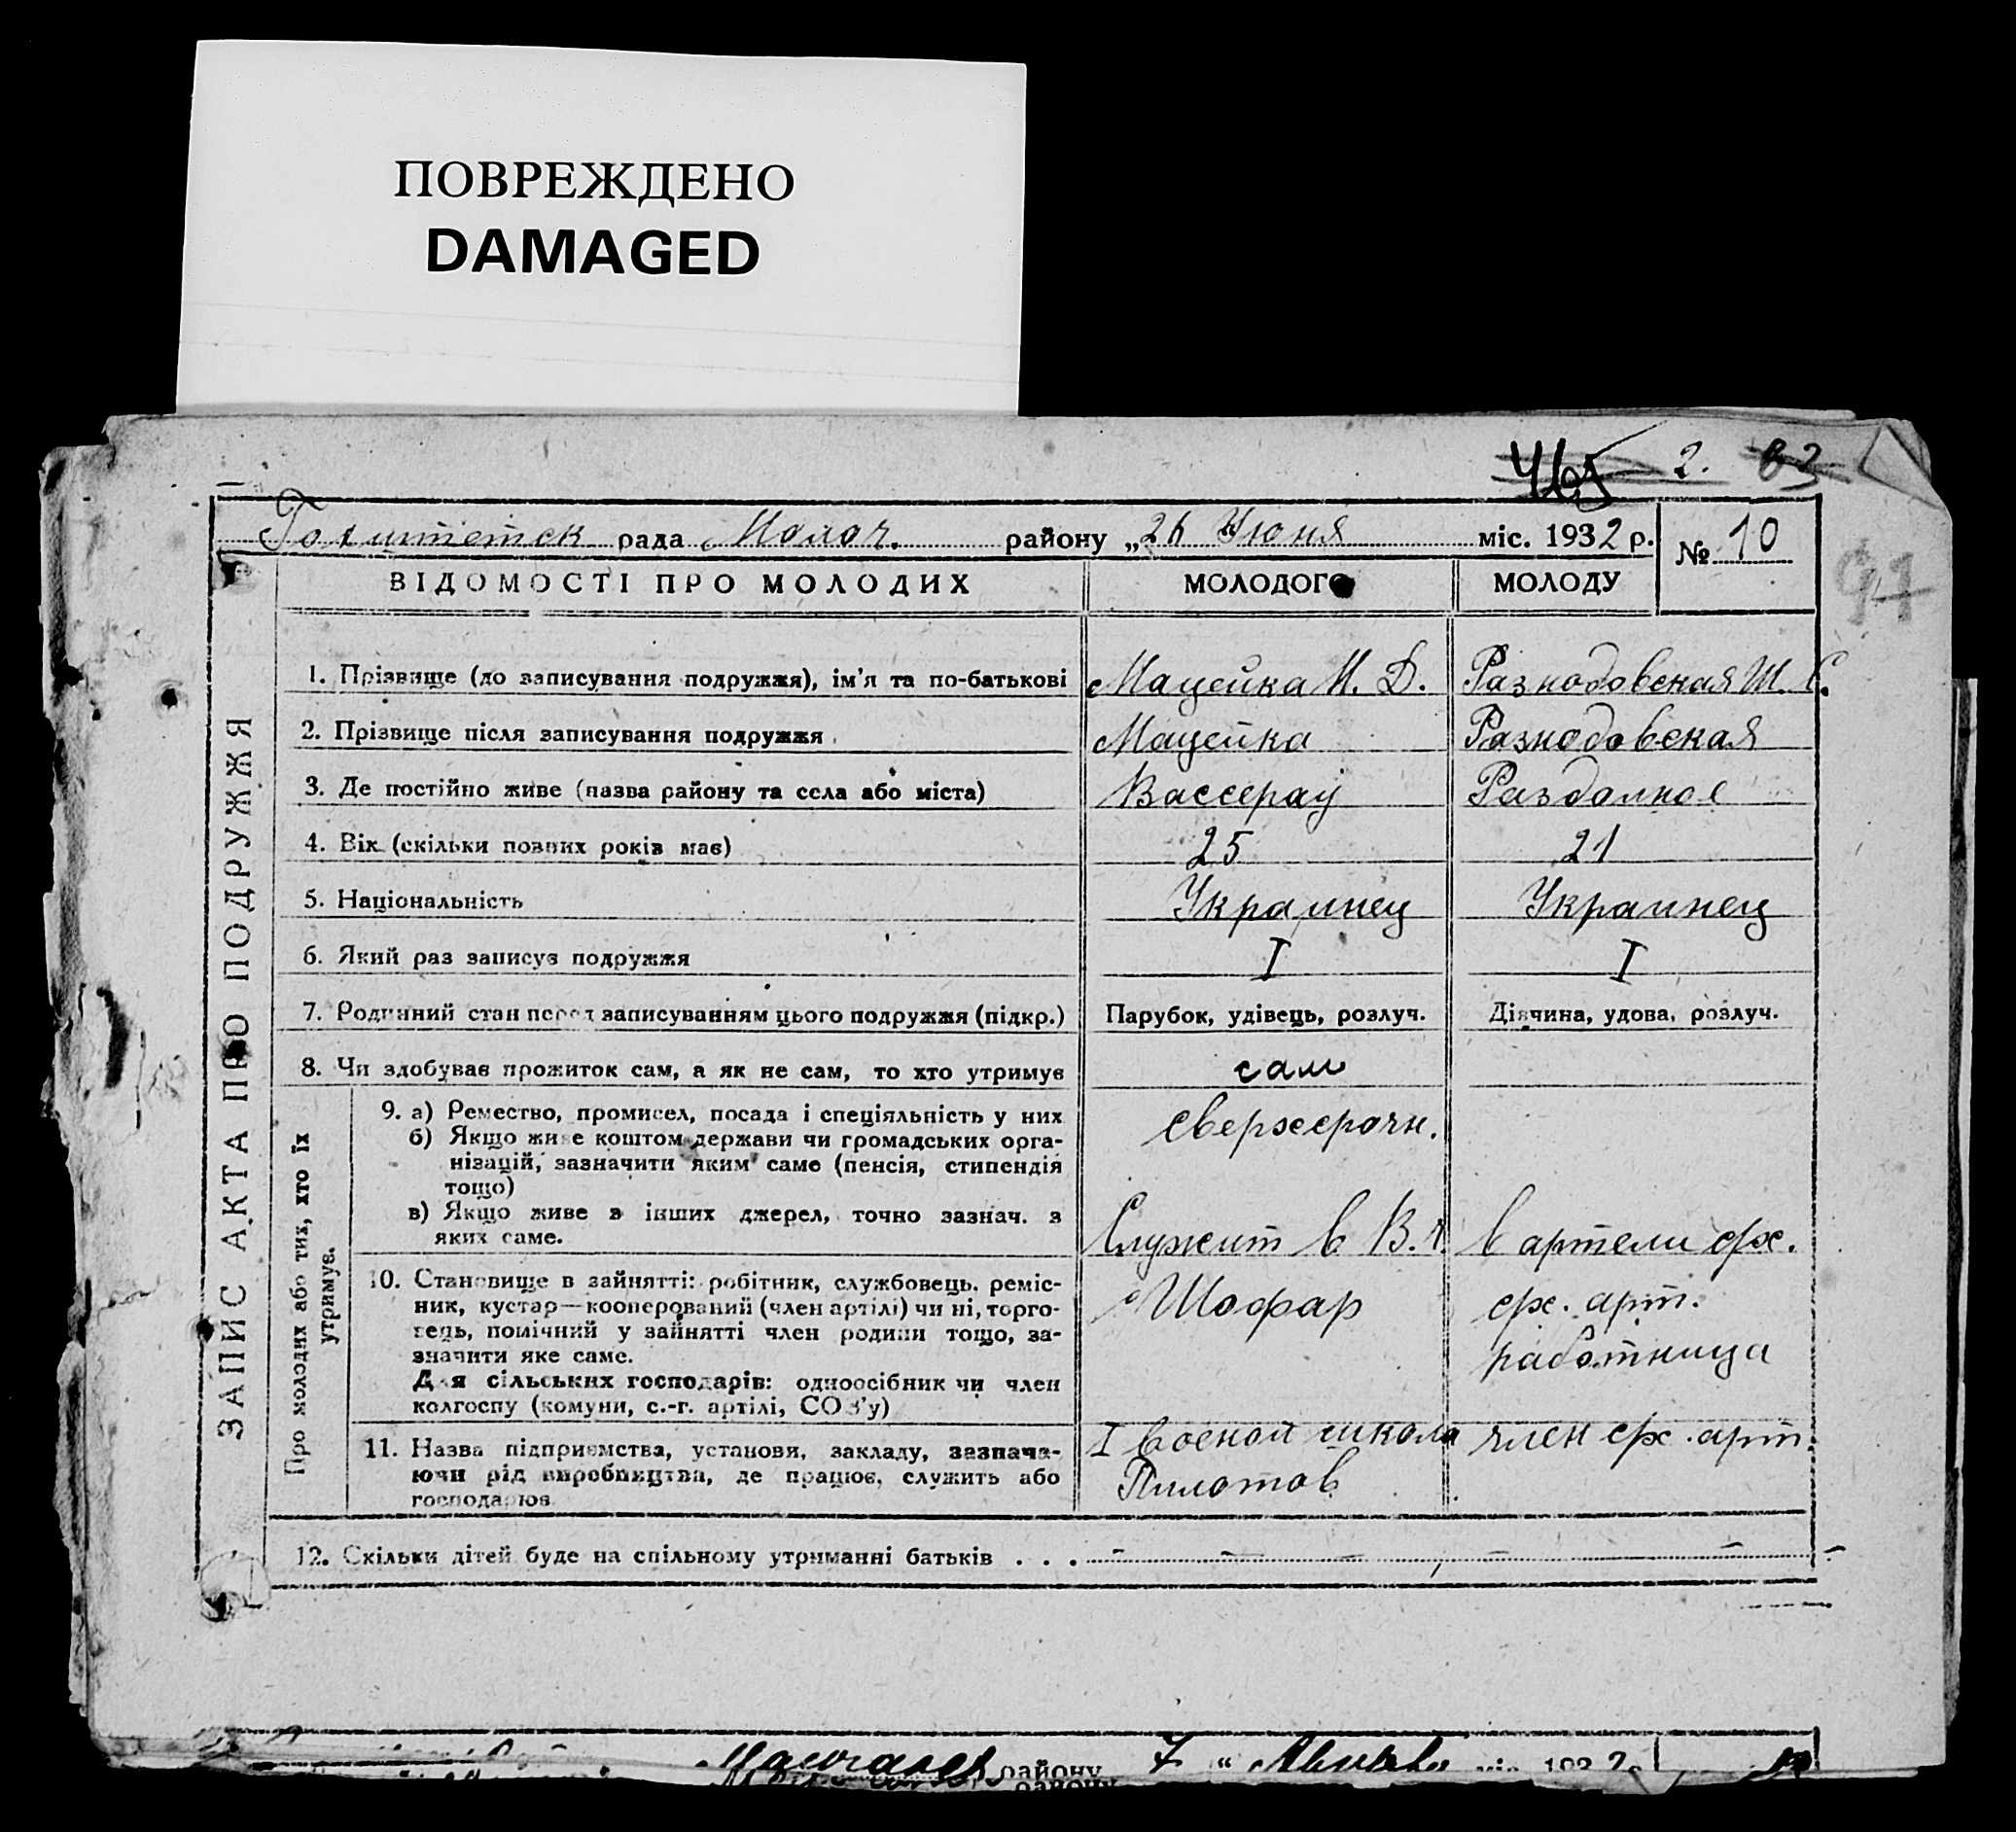 ПОВРЕЖДЕНО
DAMAGED
465 2. 83
рада Молоч. району „26 Июня міс. 1932 р. № 10
97
ЗАПИС АКТА ПРО ПОДРУЖЖЯ
ВІДОМОСТІ ПРО МОЛОДИХ МОЛОДОГО МОЛОДУ
1. Прізвище (до записування подружжя), ім'я та по-батькові Мацейка И. Д. Разнодовская М. С.
2. Прізвище після записування подружжя Мацейка Разнодовская
3. Де постійно живе (назва району та села або міста) Вассерау Раздолное
4. Вік (скільки повних років має) 25 21
5. Національність Украинец Украинец
6. Який раз записує подружжя I I
7. Родинний стан перед записуванням цього подружжя (підкр.) Парубок, удівець, розлуч. Дівчина, удова, розлуч.
8. Чи здобуває прожиток сам, а як не сам, то хто утримує сам
Про молодих або тих, хто їх утримує.
9. а) Ремество, промисел, посада і спеціяльність у них сверхсрочн.
б) Якщо живе коштом держави чи громадських орга-
нізацій, зазначити яким саме (пенсія, стипендія
тощо)
в) Якщо живе з інших джерел, точно зазнач. з Служит в В. в артели сх.
яких саме.
10. Становище в зайнятті: робітник, службовець, реміс- Шофар сх. арт.
ник, кустар—кооперований (член артілі) чи ні, торго-
вець, помічний у зайнятті член родини тощо, за- работница
значити яке саме.
Для сільських господарів: одноосібник чи член
колгоспу (комуни, с.-г. артілі, СОЗ'у)
11. Назва підприємства, установи, закладу, зазнача- I военой школа член сх. арт.
ючи рід виробництва, де працює, служить або Пилотов
господарює
12. Скільки дітей буде на спільному утриманні батьків . . . – – – – –
району 7 “ міс. 1932
району